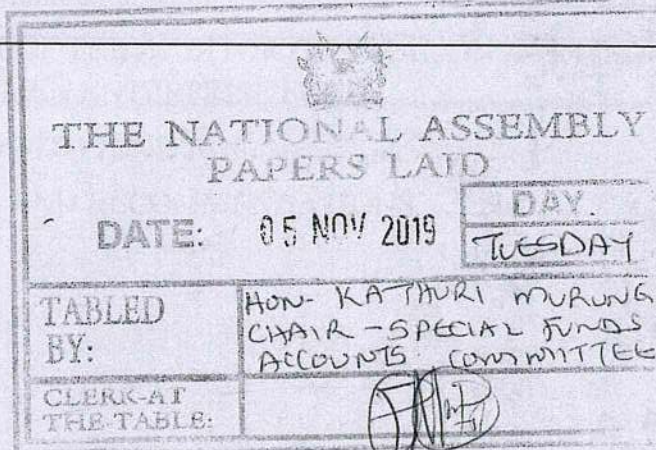 THE NATIONAL ASSEMBLY
PAPERS LAID
DATE: 05 NOV 2019
DAY.
TUESDAY
TABLED BY:
HON- KATHURI MURUNG
CHAIR - SPECIAL FUNDS
ACCOUNTS COMMITTEE
CLERK-AT
THE-TABLE: